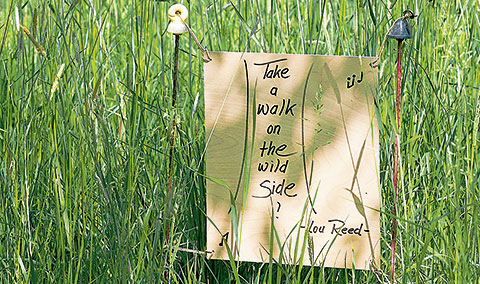 Take
a
walk
on
the
wild
Side
?
-Lou Reed-